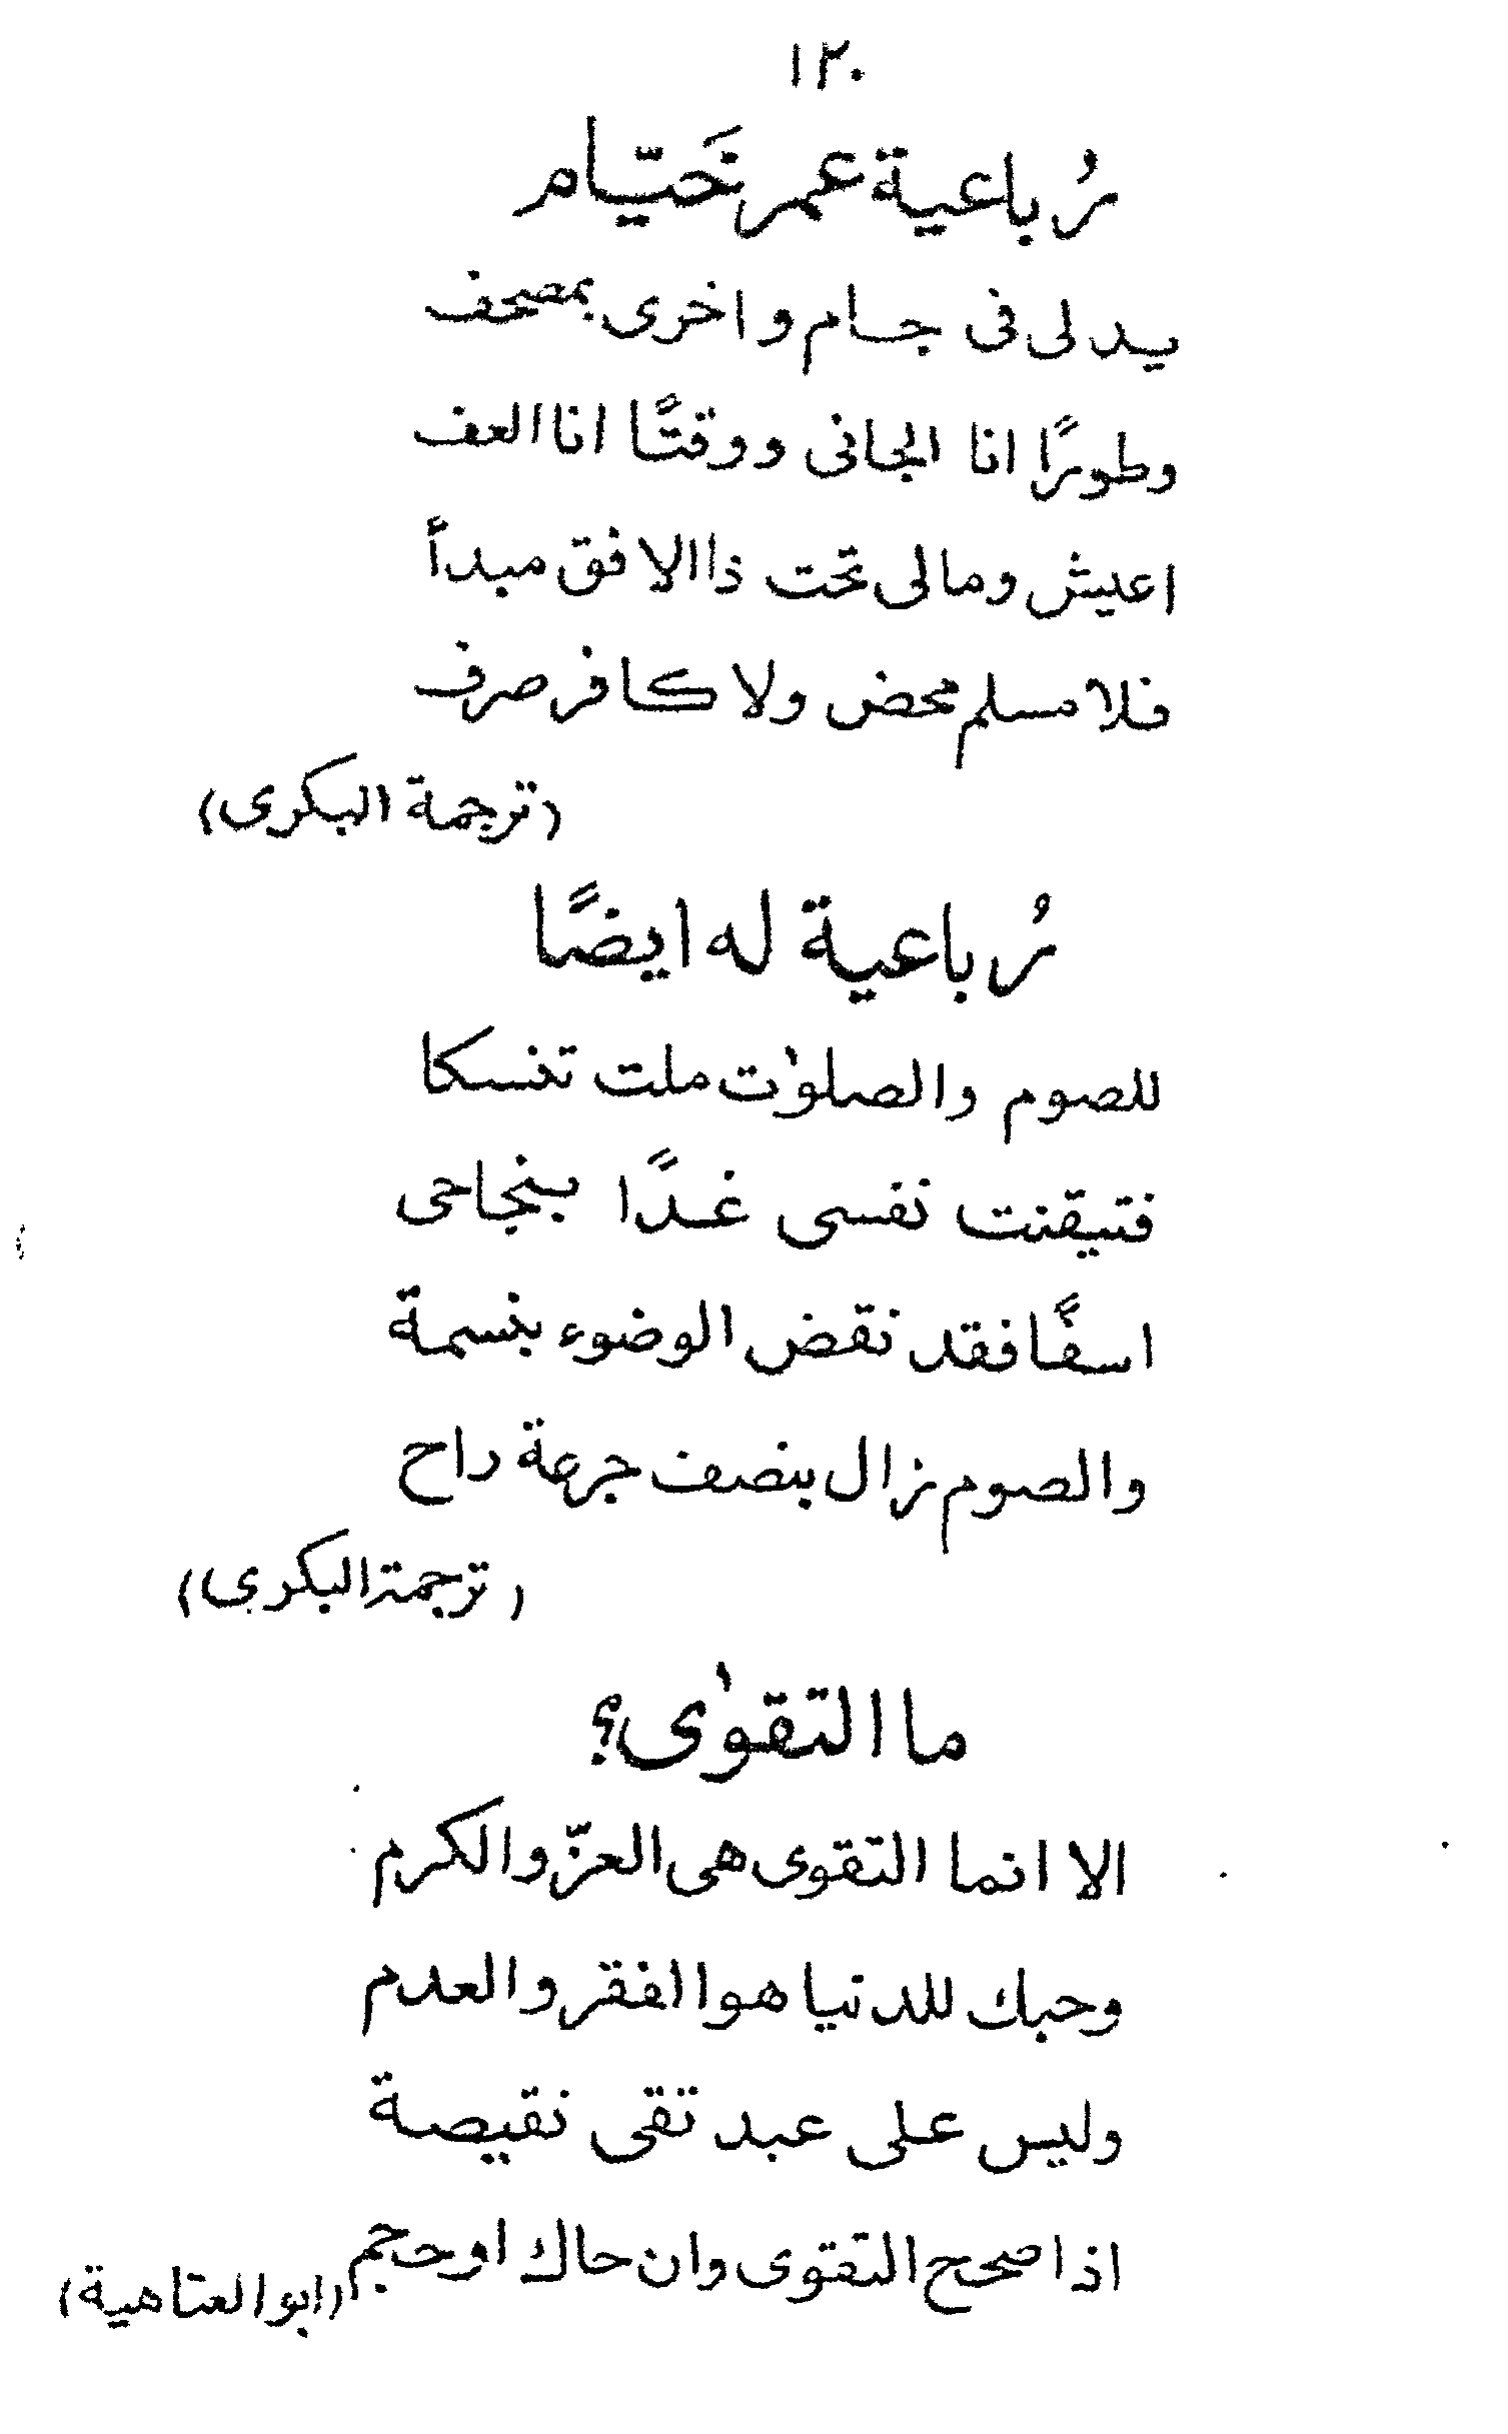 ١٢٠
رُباعية عمر خَيّام
يد لى فى جام واخرى بمصحف
وطورًا انا الجانى ووقتًا انا العف
اعيش ومالى تحت ذا الافق مبدأ
فلا مسلم محض ولا كافر صرف
(ترجمة البكرى)
رُباعية له ايضًا
للصوم والصلوٰت ملت تنسكا
فتيقنت نفسى غدًا بنجاحى
اسفًا فقد نقض الوضوء بنسمة
والصوم زال بنصف جرعة راح
(ترجمة البكرى)
ما التقوٰى؟
الا انما التقوى هى العزّ والكرم
وحبك للدنيا هو الفقر والعدم
وليس على عبد تقى نقيصة
اذا صحح التقوى وان حاك او حجم
(ابو العتاهية)